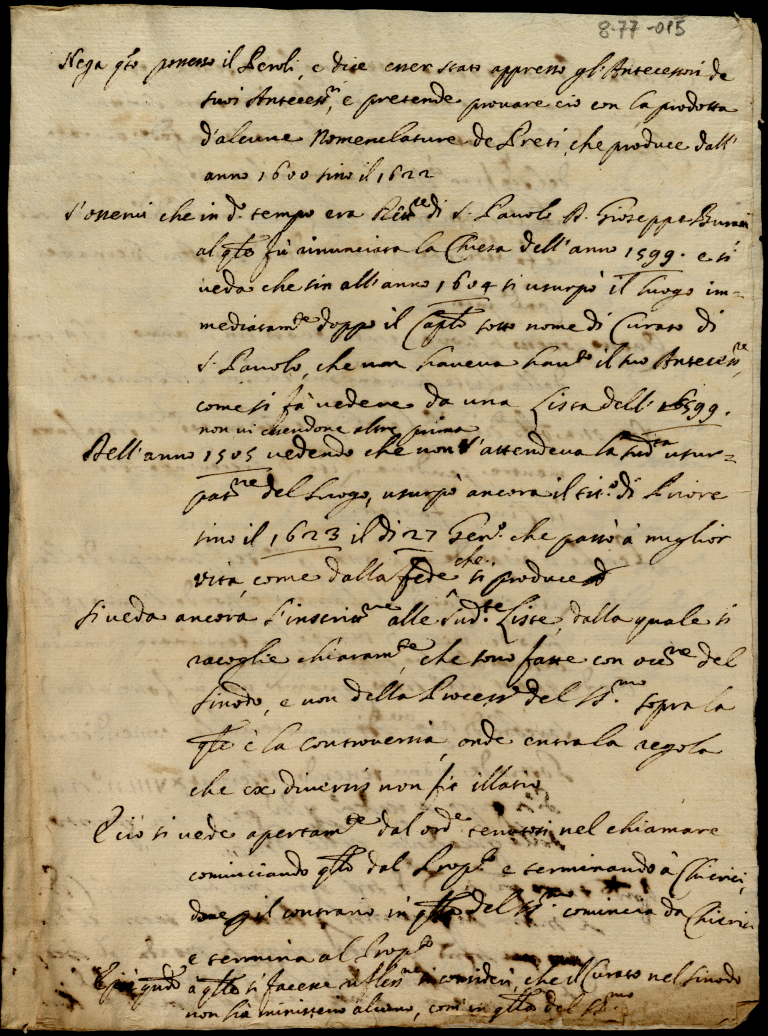 8-77-015
Nega q̃to possesso il Peroli, e dice esser stato appresso gl'Antecessori de
suoi Antecess.ri, e pretende provare ciò con la prodotta
d'alcune Nomenclature de Preti, che produce dall'
anno 1600 sino il 1622
S'osservi che in d.º tempo era Rett.re di S. Pavolo D. Gioseppe
al q̃le fù rinunciata la Chiesa dell'anno 1599. e si
veda che sin all'anno 1604 si usurpò il luogo im=
mediatam.te doppo il Cap̃lo sotto nome di Curato di
S. Pavolo, che non haveva havuto il suo Antecess.re,
come si fà vedere da una Lista dell' 1599.
non vi essendone altre prima
Dell'anno 1505 vedendo che non s'attendeva la sud.ta usur=
pat.ne del luogo, usurpò ancora il tit.º di Priore
sino il 1623 il dì 27 Gen.º che passò à miglior
vita, come dalla fede che si produce
Si veda ancora l'inscrit.ne alle sud.te Liste, dalla quale si
racoglie chiaram.te, che sono fatte con occ.ne del
Sinodo, e non della Process.ne del SS.mo sopra la
q̃le è la controversia, onde entra la regola
che ex diversis non fit illatio
E ciò si vede apertam.te dal ord.e tenutosi nel chiamare
cominciando q̃llo dal Prop.to e terminando à Chierici,
dove il contrario in q̃llo del SS.mo comincia da Chierici
e termina al Prop.to
E più q̃ndo à q̃llo si facesse refless.ne si consideri, che il Curato nel Sinodo
non hà ministero alcuno, com'in q̃llo del SS.mo